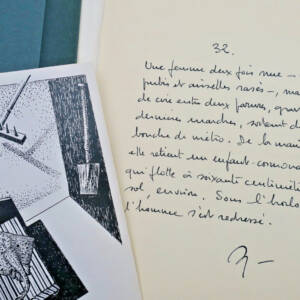 32.
Une femme deux fois nue –
pubis et aisselles rasés –, ma
de cire entre deux paumes, grav
dernières marches, sortent d
bouche de métro. De la mai
elle retient un enfant-cornova
qui flotte à soixante centimè
sol, environ. Sous l'horlo
l'homme s'est redressé.